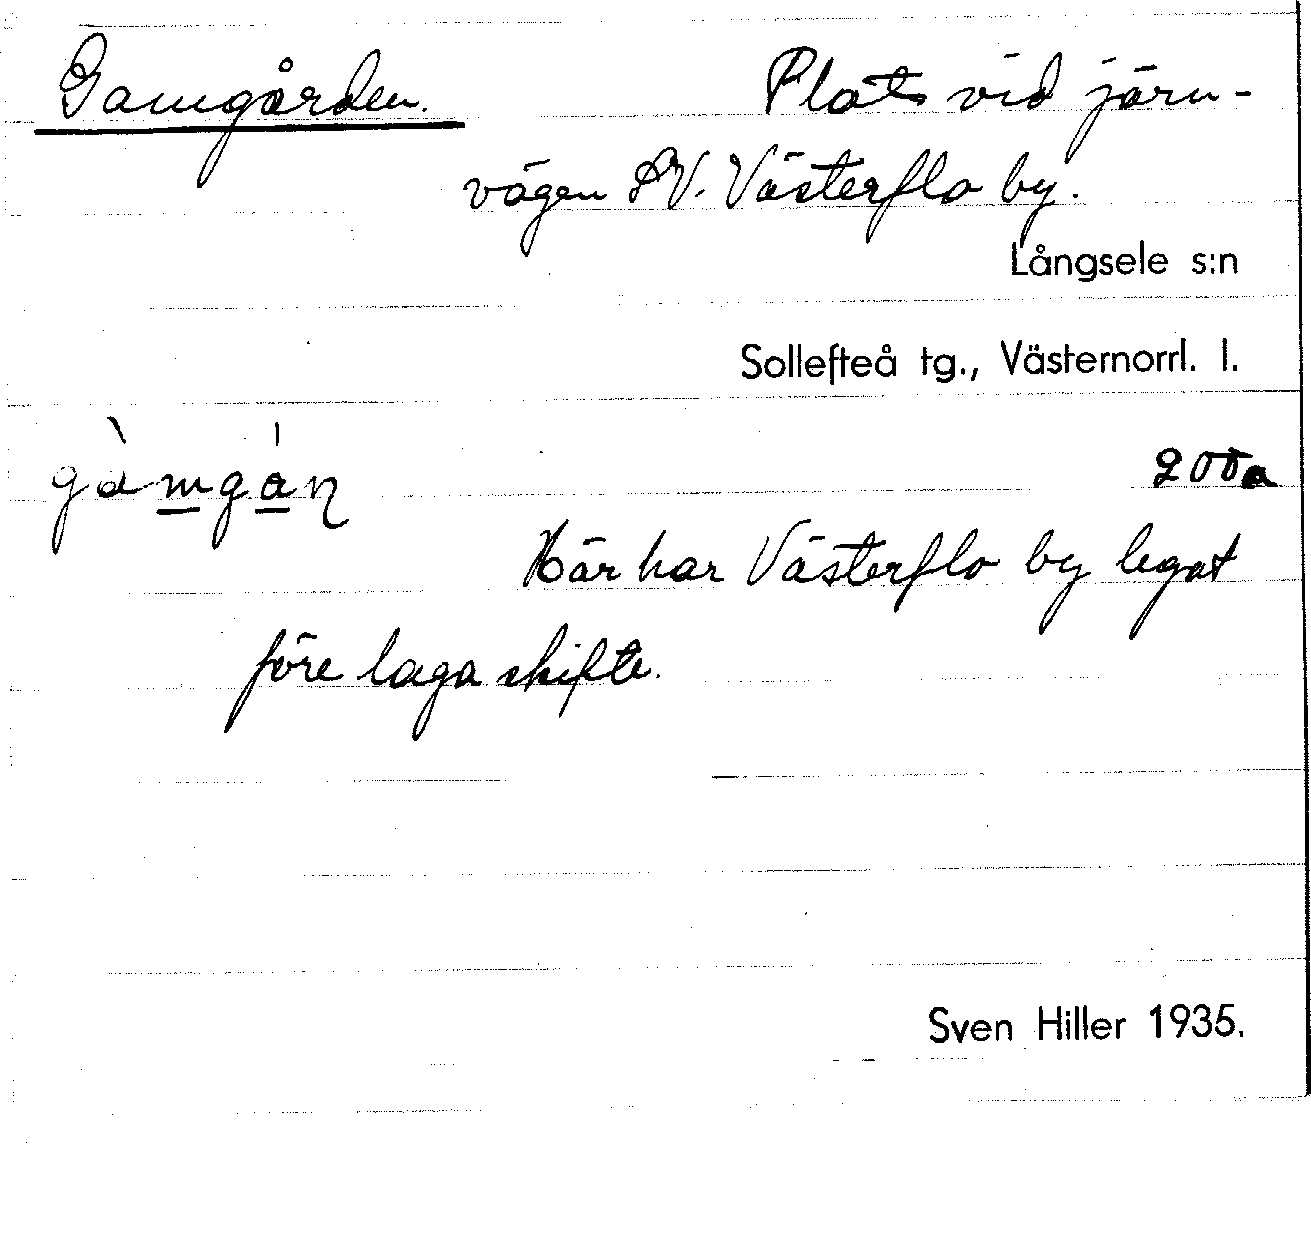 Gamgården. Plats vid järn-
vägen SV. Västerflo by.
Långsele s:n
Sollefteå tg., Västernorrl. l.
gàmgán
Här har Västerflo by legat
före laga skifte.
Sven Hiller 1935.